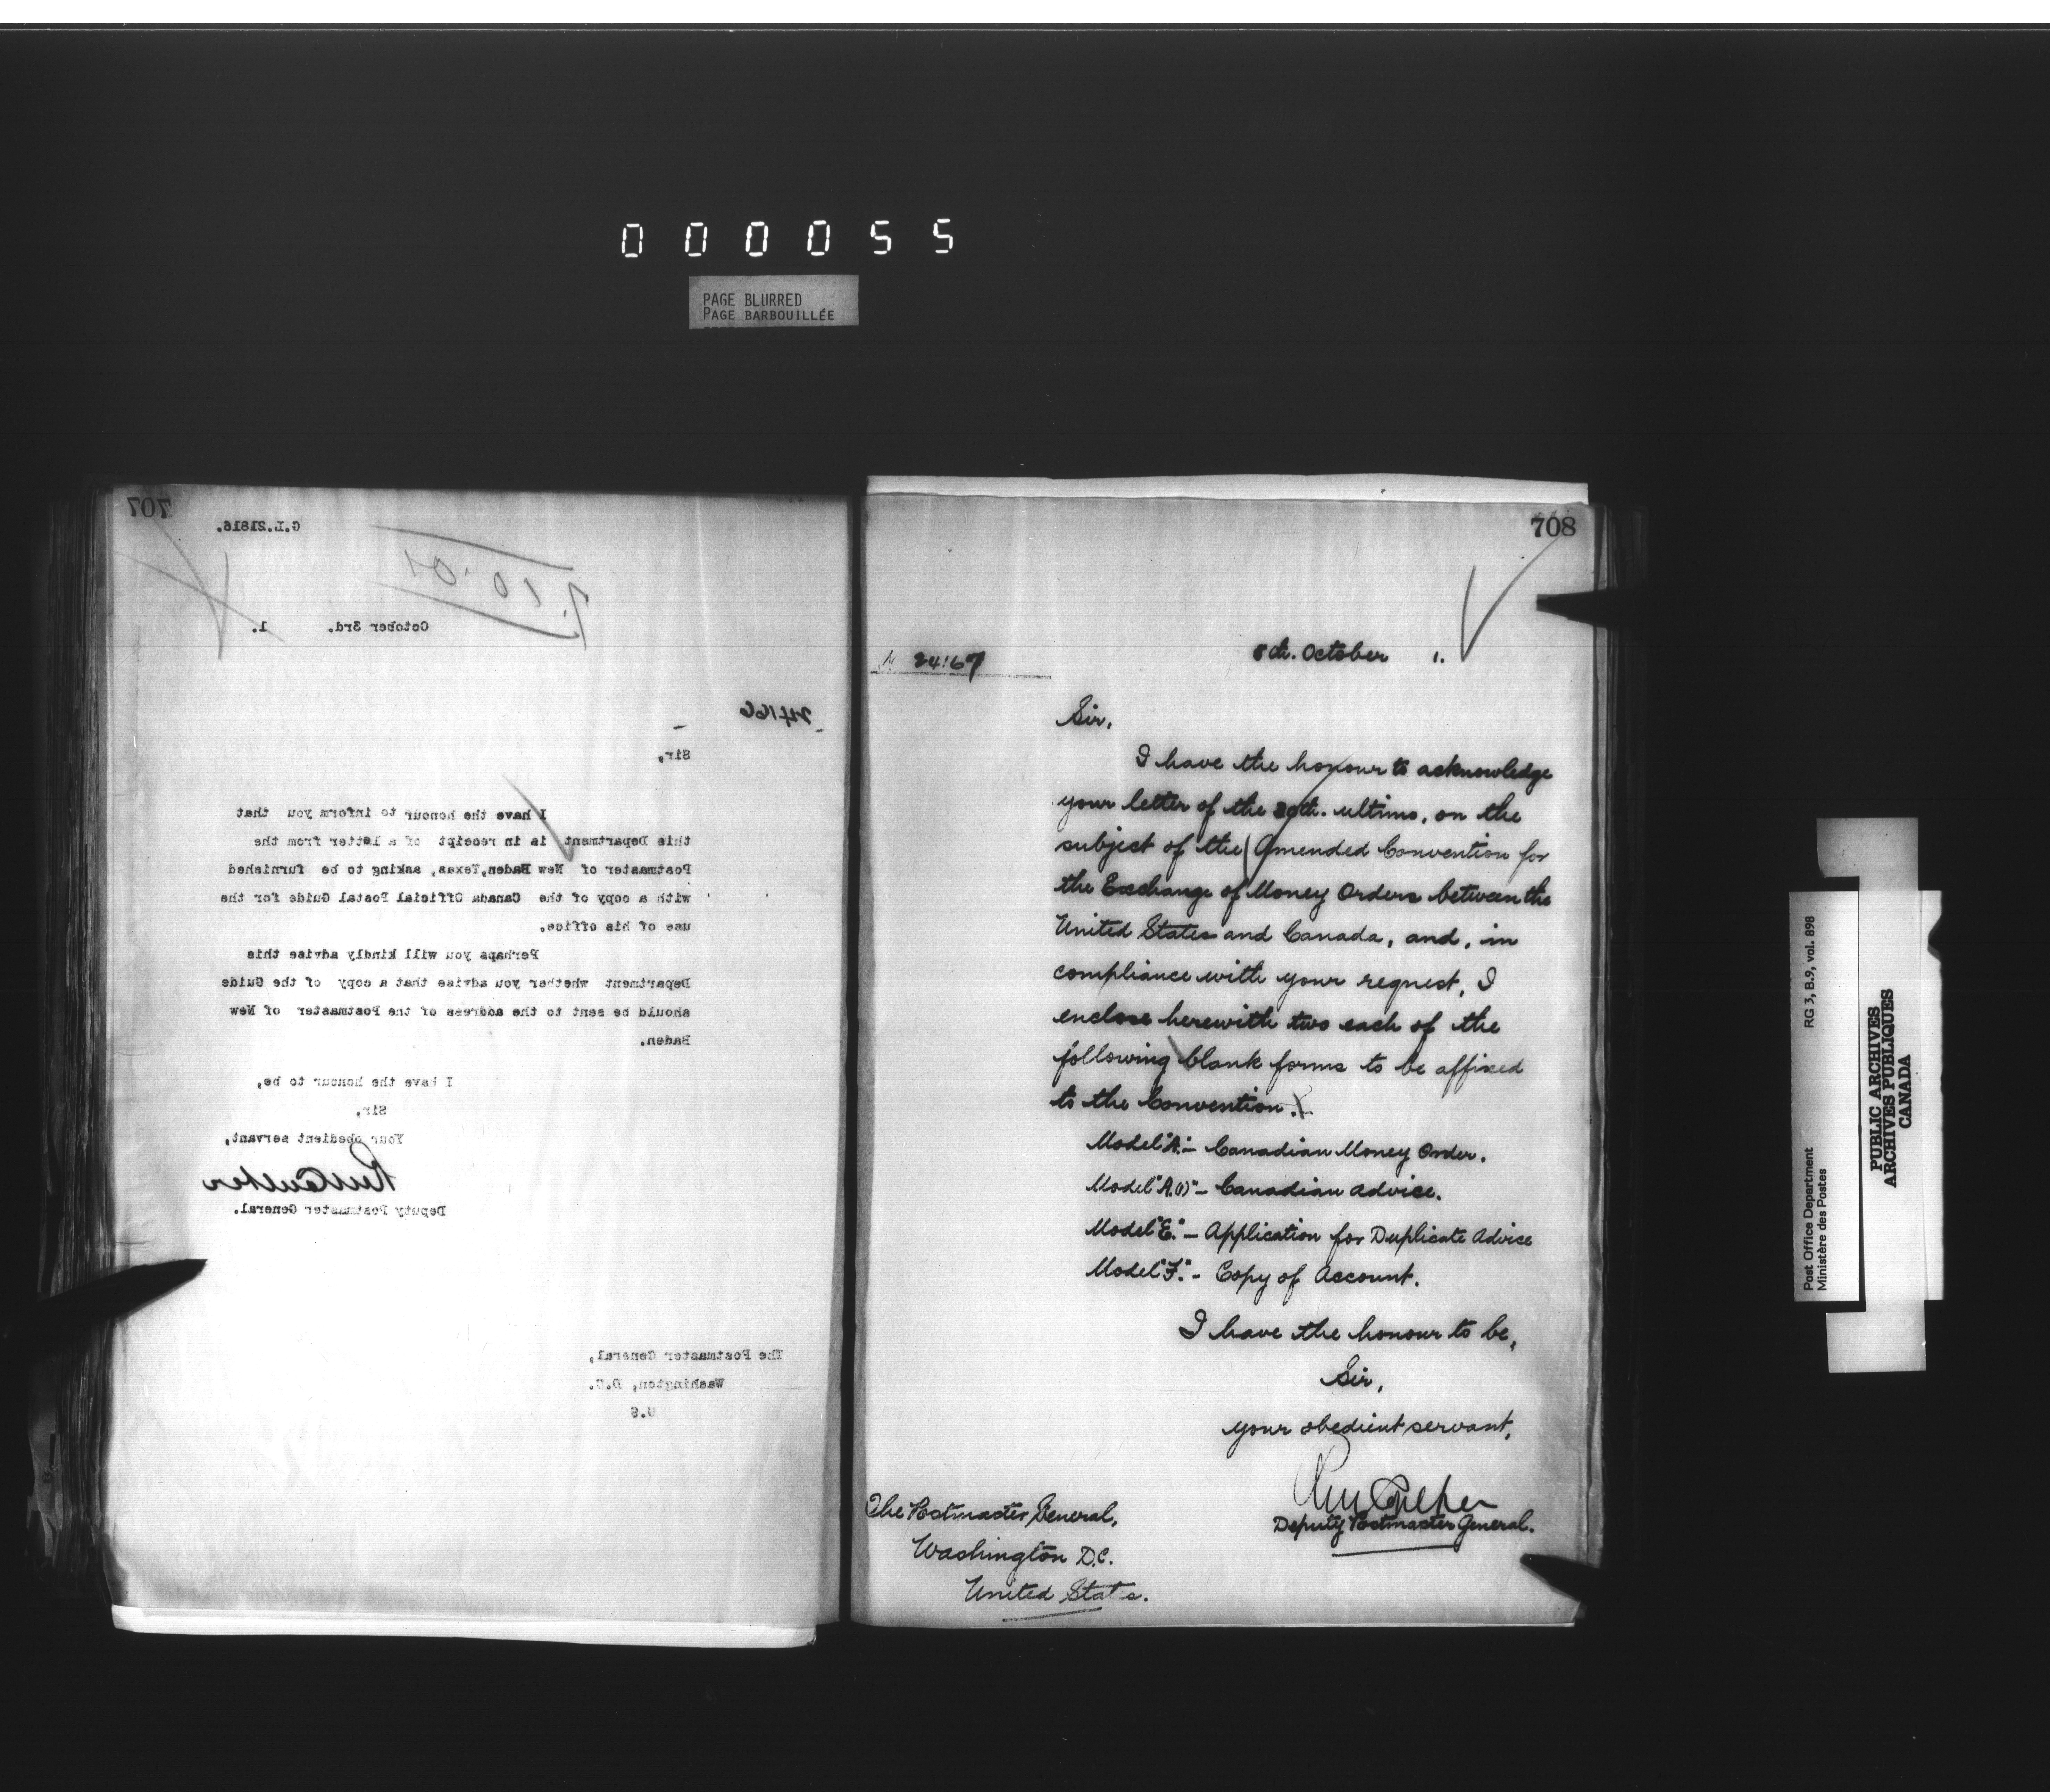 000055
PAGE BLURRED
PAGE BARBOUILLÉE
707
G.L.21816.
7.10.01
October 3rd. 1.
24166
Sir,
I have the honour to inform you that
this Department is in receipt of a letter from the
Postmaster of New Baden,Texas, asking to be furnished
with a copy of the Canada Official Postal Guide for the
use of his office.
Perhaps you will kindly advise this
Department whether you advise that a copy of the Guide
should be sent to the address of the Postmaster of New
Baden.
I have the honour to be,
Sir,
Your obedient servant,
Deputy Postmaster General.
The Postmaster General,
Washington, D.C.
U.S
708
24167
8th. October 1.
Sir,
I have the honour to acknowledge
your letter of the 30th. ultimo, on the
subject of the Amended Convention for
the Exchange of Money Orders between the
United States and Canada, and, in
compliance with your request, I
enclose herewith two each of the
following blank forms to be affixed
to the Convention.
Model "A." - Canadian Money Order.
Model "A.(1)" - Canadian Advice.
Model "E." - Application for Duplicate Advice
Model "F." - Copy of Account.
I have the honour to be,
Sir,
your obedient servant,
Deputy Postmaster General.
The Postmaster General,
Washington D.C.
United States.
Post Office Department
Ministère des Postes
RG 3, B.9, vol. 898
PUBLIC ARCHIVES
ARCHIVES PUBLIQUES
CANADA